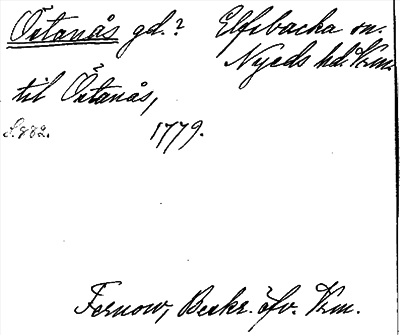 Östanås gd.? Elfsbacka sn.
Nyeds hd. Vrm.
til Östanås,
S. 882. 1779.
Fernow, Beskr. öfv. Vrm.